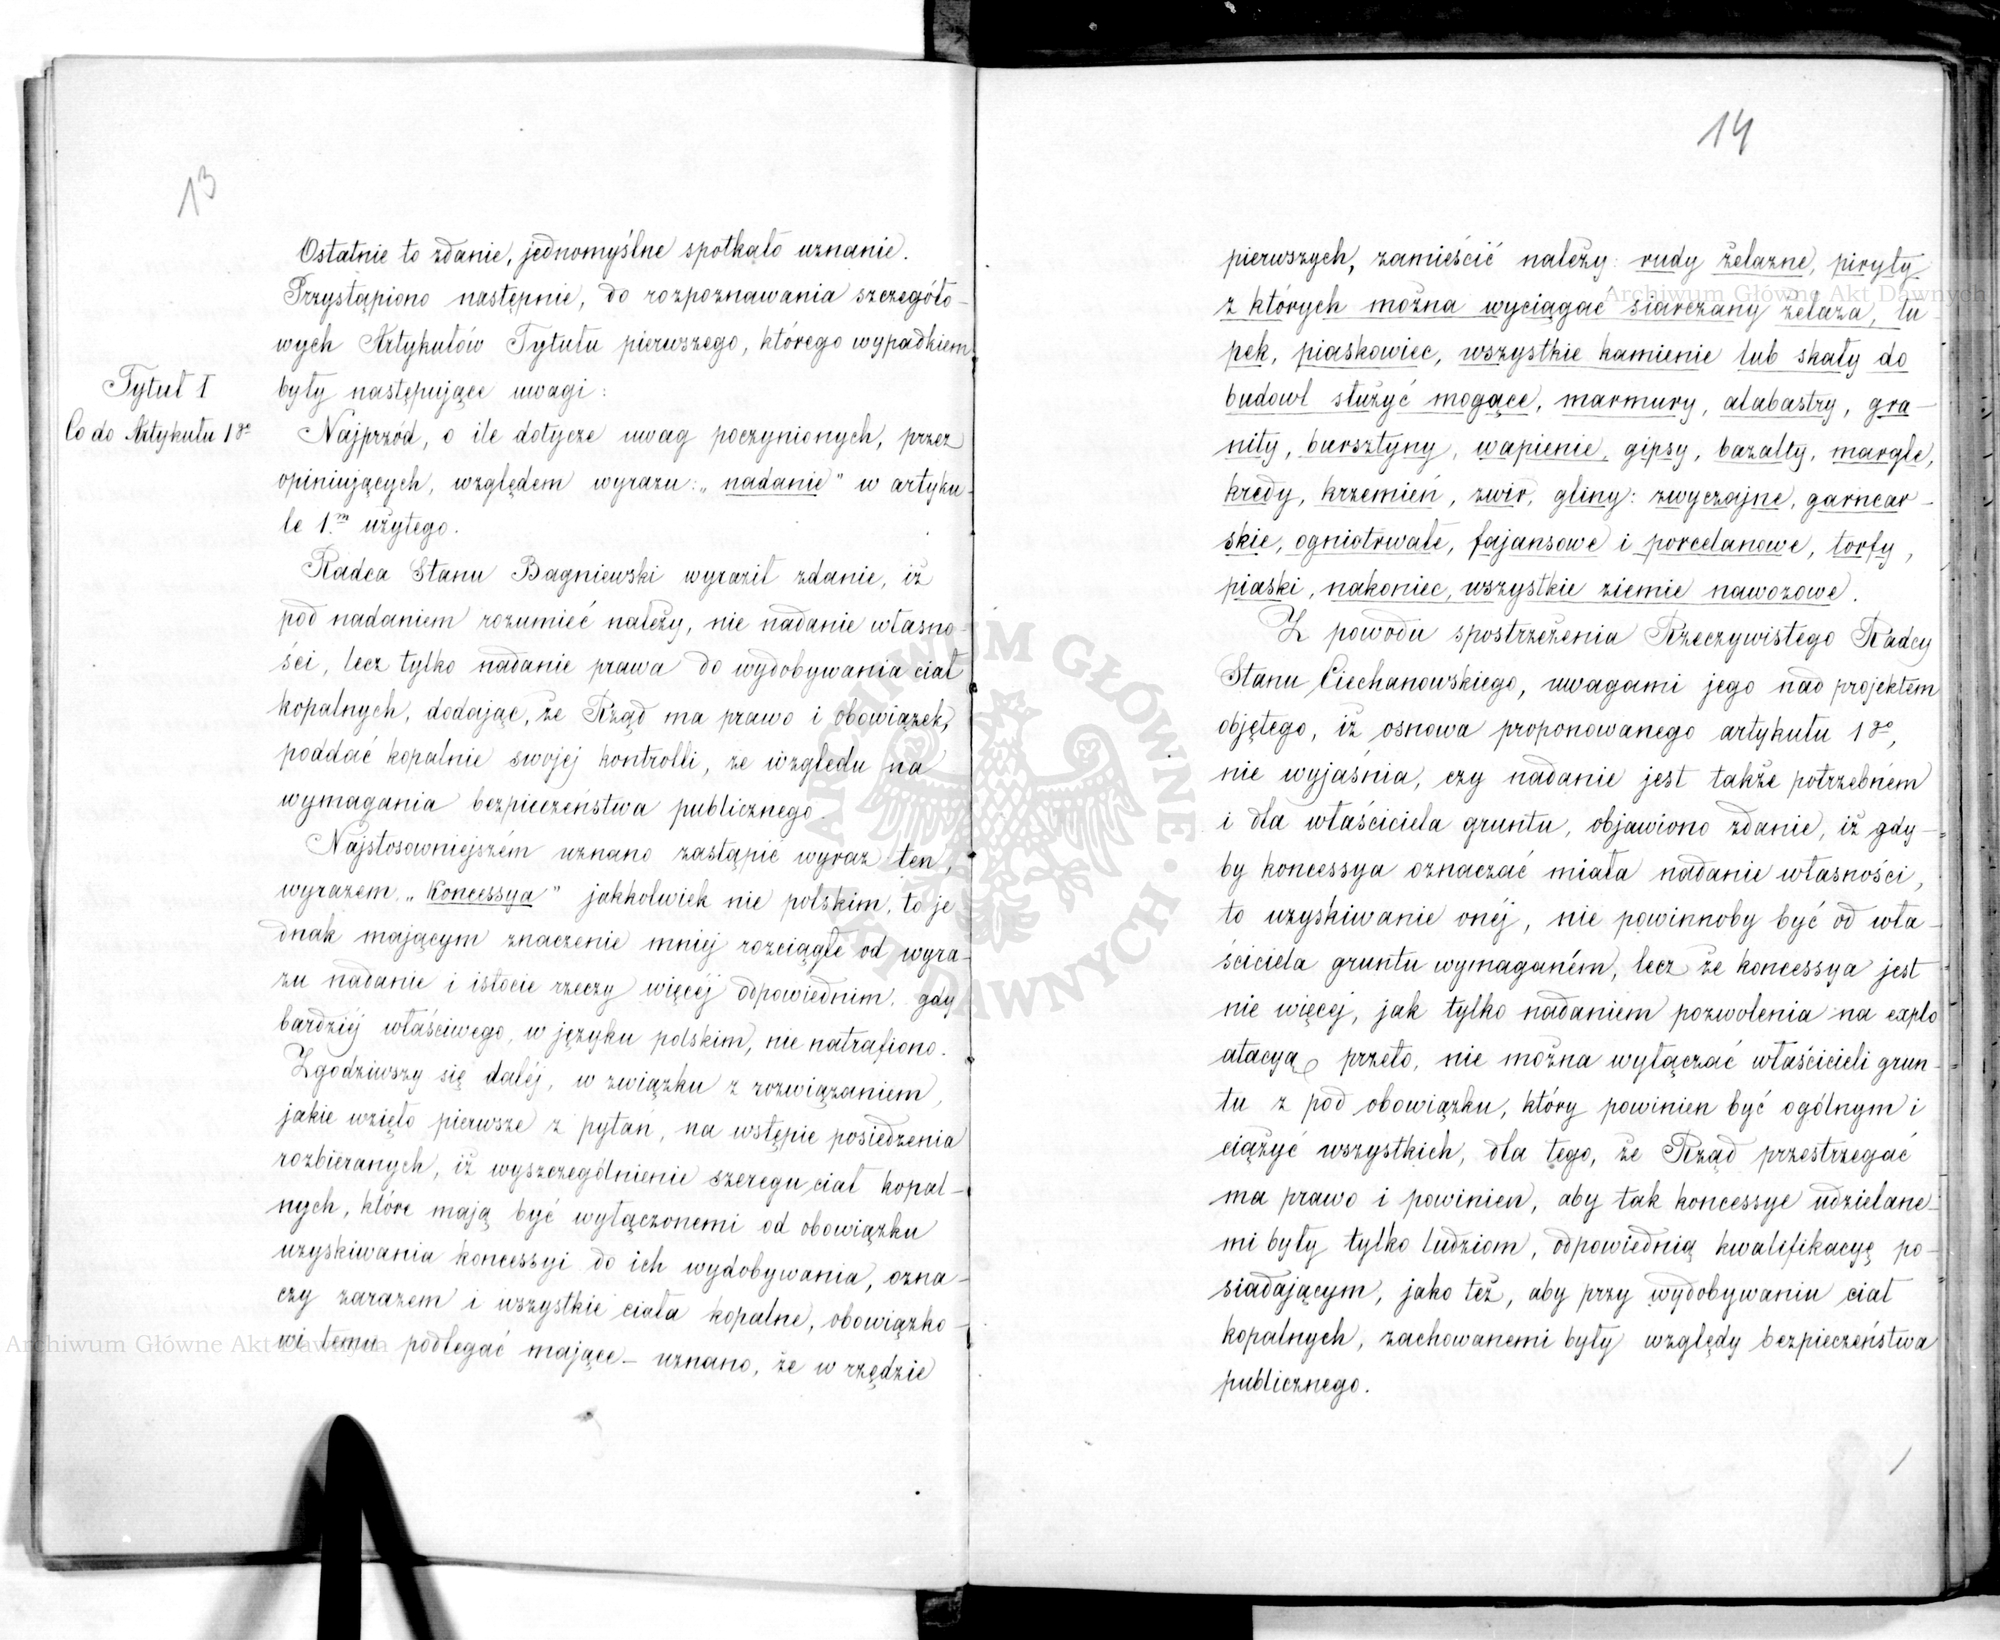 13
Ostatnie to zdanie, jednomyślne spotkało uznanie.
Przystąpiono następnie, do rozpoznawania szczegóło-
wych Artykułów Tytułu pierwszego, którego wypadkiem
były następujące uwagi:
Tytuł I
Co do Artykułu 1go
Najprzód, o ile dotycze uwag poczynionych, przez
opiniujących, względem wyrazu: „nadanie" w artyku-
le 1.m użytego.
Radca Stanu Bagniewski wyraził zdanie, iż
pod nadaniem rozumieć należy, nie nadanie własno-
ści, lecz tylko nadanie prawa do wydobywania ciał
kopalnych, dodając, że Rząd ma prawo i obowiązek,
poddać kopalnie swojéj kontrolli, ze względu na
wymagania bezpieczeństwa publicznego.
Najstosowniejszém uznano zastąpić wyraz ten,
wyrazem „Koncessya" jakkolwiek nie polskim, to je
dnak mającym znaczenie mniéj rozciągłe od wyra-
zu nadanie i istocie rzeczy więcéj odpowiednim, gdy
bardziéj właściwego, w języku polskim, nie natrafiono.
Zgodziwszy się daléj, w związku z rozwiązaniem,
jakie wzięło pierwsze z pytań, na wstępie posiedzenia
rozbieranych, iż wyszczególnienie szeregu ciał kopal-
nych, które mają być wyłączonemi od obowiązku
uzyskiwania koncessyi do ich wydobywania, ozna-
czy zarazem i wszystkie ciała kopalne, obowiązko-
wi temu podlegać mające – uznano, że w rzędzie
14
pierwszych, zamieścić należy: rudy żelazne, piryty
z których można wyciągać siarczany żelaza, łu-
pek, piaskowiec, wszystkie kamienie lub skały do
budowl służyć mogące, marmury, alabastry, gra-
nity, bursztyny, wapienie, gipsy, bazalty, margle,
kredy, krzemień, żwir, gliny: zwyczajne, garncar-
skie, ogniotrwałe, fajansowe i porcelanowe, torfy,
piaski, nakoniec, wszystkie ziemie nawozowe.
Z powodu spostrzeżenia Rzeczywistego Radcy
Stanu Ciechanowskiego, uwagami jego nad projektem
objętego, iż osnowa proponowanego artykułu 1go,
nie wyjaśnia, czy nadanie jest także potrzebném
i dla właściciela gruntu, objawiono zdanie, iż gdy-
by koncessya oznaczać miała nadanie własności,
to uzyskiwanie onéj, nie powinnoby być od wła-
ściciela gruntu wymaganém, lecz że koncessya jest
nie więcéj, jak tylko nadaniem pozwolenia na explo
atacyą, przeto, nie można wyłączać właścicieli grun-
tu z pod obowiązku, który powinien być ogólnym i
ciążyć wszystkich, dla tego, że Rząd przestrzegać
ma prawo i powinien, aby tak koncessye udzielane-
mi były tylko ludziom, odpowiednią kwalifikacyę po-
siadającym, jako też, aby przy wydobywaniu ciał
kopalnych, zachowanemi były względy bezpieczeństwa
publicznego.
Archiwum Główne Akt Dawnych
Archiwum Główne Akt Dawnych
ARCHIWUM GŁÓWNE AKT DAWNYCH